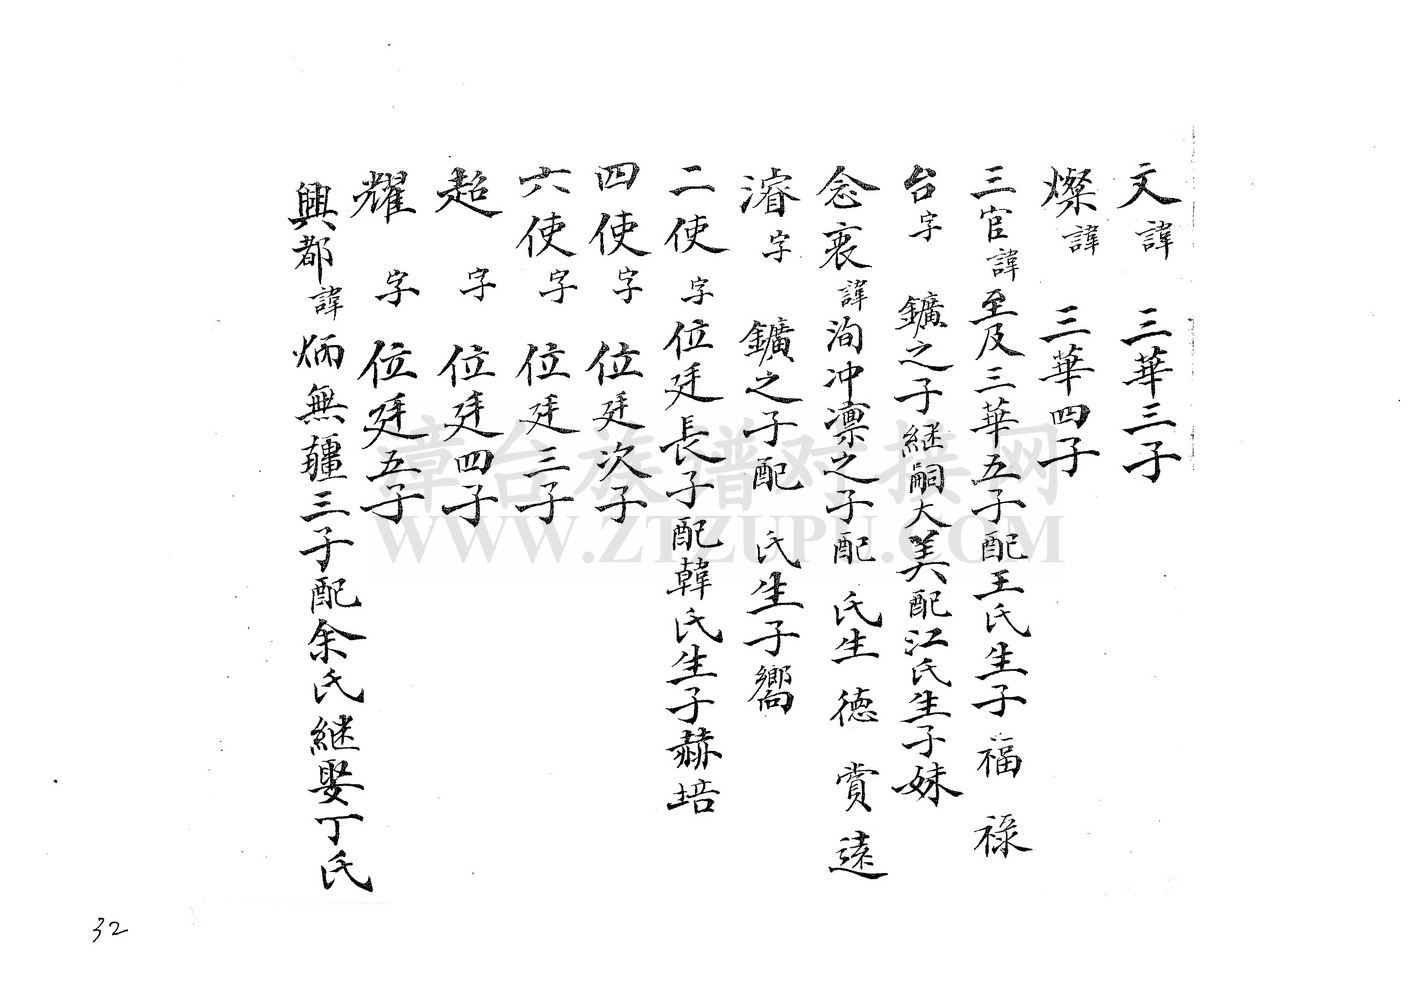 文諱 三華三子
燦諱 三華四子
三官諱至及三華五子配王氏生子福 祿
台字 鑛之子継嗣大美配江氏生子妹
念衷諱洵冲凛之子配 氏生 德 賞 遠
濬字 鑛之子配 氏生子嚮
二使字位廷長子配韓氏生子赫培
四使字 位廷次子
六使字 位廷三子
超 字 位廷四子
耀 字 位廷五子
興都諱炳無疆三子配余氏継娶丁氏
章台族谱对接网
WWW.ZTZUPU.COM
32